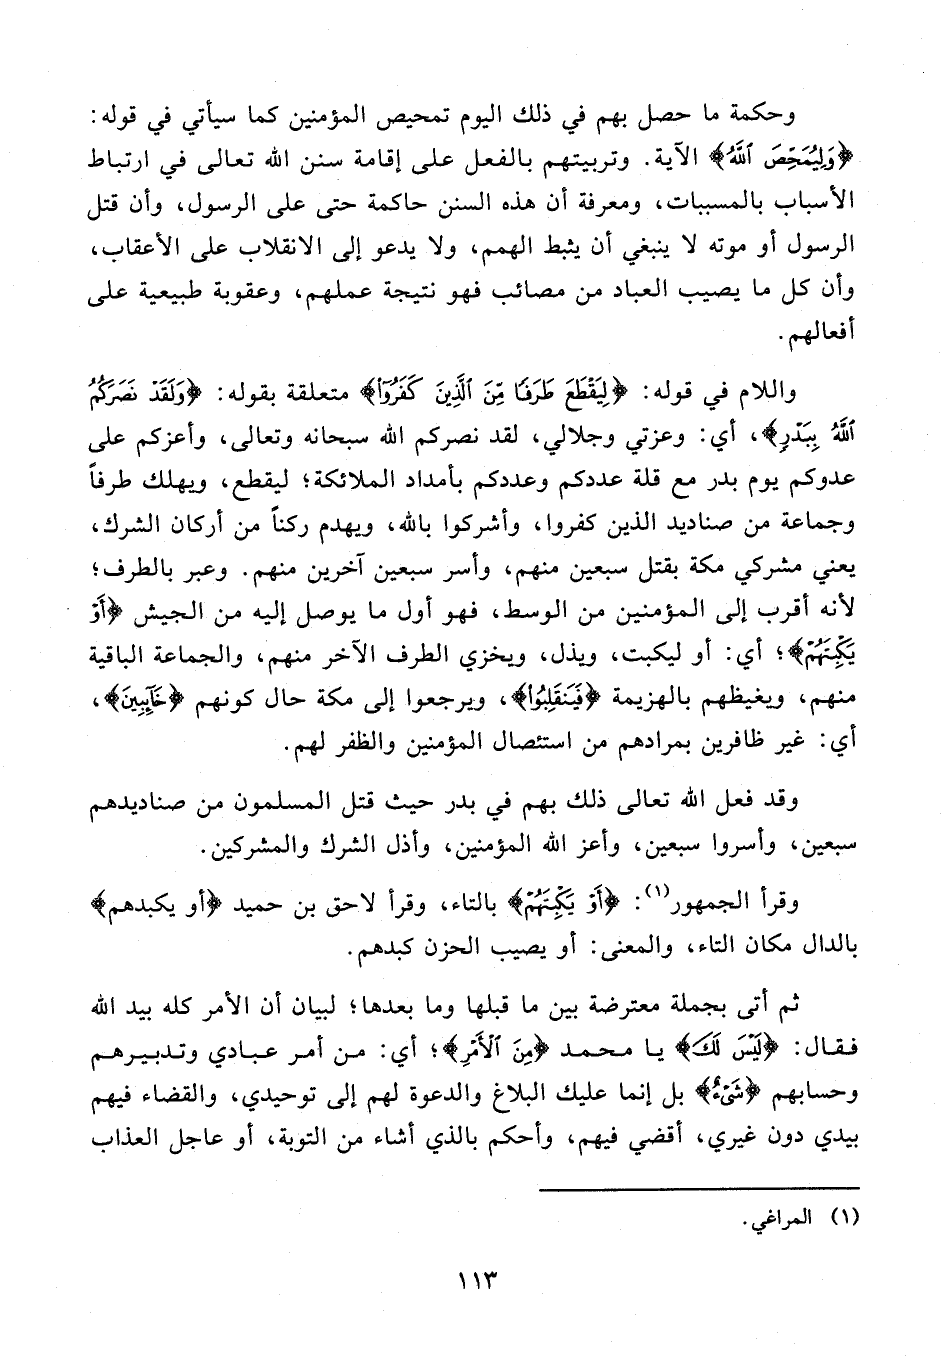 وحكمة ما حصل بهم في ذلك اليوم تمحيص المؤمنين كما سيأتي في قوله:
﴿وَلِيُمَحِّصَ ٱللَّهُ﴾ الآية. وتربيتهم بالفعل على إقامة سنن الله تعالى في ارتباط
الأسباب بالمسببات، ومعرفة أن هذه السنن حاكمة حتى على الرسول، وأن قتل
الرسول أو موته لا ينبغي أن يثبط الهمم، ولا يدعو إلى الانقلاب على الأعقاب،
وأن كل ما يصيب العباد من مصائب فهو نتيجة عملهم، وعقوبة طبيعية على
أفعالهم.
واللام في قوله: ﴿لِيَقْطَعَ طَرَفًا مِّنَ ٱلَّذِينَ كَفَرُوٓا۟﴾ متعلقة بقوله: ﴿وَلَقَدْ نَصَرَكُمُ
ٱللَّهُ بِبَدْرٍ﴾، أي: وعزتي وجلالي، لقد نصركم الله سبحانه وتعالى، وأعزكم على
عدوكم يوم بدر مع قلة عددكم وعددكم بأمداد الملائكة؛ ليقطع، ويهلك طرفاً
وجماعة من صناديد الذين كفروا، وأشركوا بالله، ويهدم ركناً من أركان الشرك،
يعني مشركي مكة بقتل سبعين منهم، وأسر سبعين آخرين منهم. وعبر بالطرف؛
لأنه أقرب إلى المؤمنين من الوسط، فهو أول ما يوصل إليه من الجيش ﴿أَوْ
يَكْبِتَهُمْ﴾؛ أي: أو ليكبت، ويذل، ويخزي الطرف الآخر منهم، والجماعة الباقية
منهم، ويغيظهم بالهزيمة ﴿فَيَنقَلِبُوا۟﴾، ويرجعوا إلى مكة حال كونهم ﴿خَآئِبِينَ﴾،
أي: غير ظافرين بمرادهم من استئصال المؤمنين والظفر لهم.
وقد فعل الله تعالى ذلك بهم في بدر حيث قتل المسلمون من صناديدهم
سبعين، وأسروا سبعين، وأعز الله المؤمنين، وأذل الشرك والمشركين.
وقرأ الجمهور(١): ﴿أَوْ يَكْبِتَهُمْ﴾ بالتاء، وقرأ لاحق بن حميد ﴿أو يكبدهم﴾
بالدال مكان التاء، والمعنى: أو يصيب الحزن كبدهم.
ثم أتى بجملة معترضة بين ما قبلها وما بعدها؛ لبيان أن الأمر كله بيد الله
فقال: ﴿لَيْسَ لَكَ﴾ يا محمد ﴿مِنَ ٱلْأَمْرِ﴾؛ أي: من أمر عبادي وتدبيرهم
وحسابهم ﴿شَىْءٌ﴾ بل إنما عليك البلاغ والدعوة لهم إلى توحيدي، والقضاء فيهم
بيدي دون غيري، أقضي فيهم، وأحكم بالذي أشاء من التوبة، أو عاجل العذاب
(١) المراغي.
١١٣